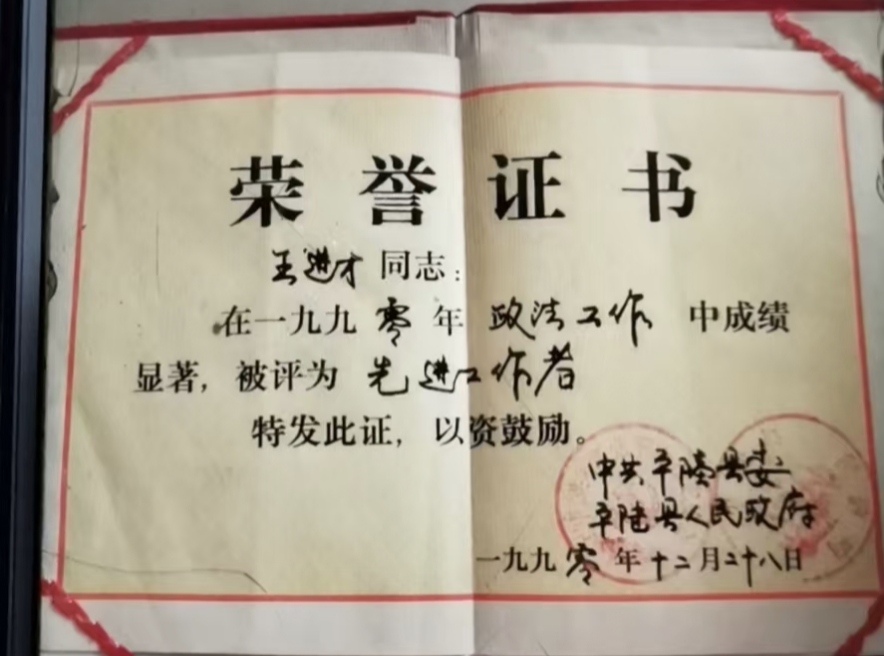 荣誉证书
王进才同志：
在一九九零年政法工作中成绩
显著，被评为先进工作者
特发此证，以资鼓励。
中共平陆县委
平陆县人民政府
一九九零年十二月二十八日